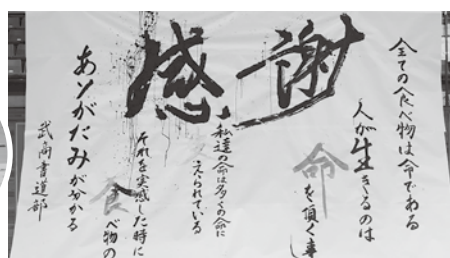 感謝
全ての食べ物は命である
人が生きるのは
命を頂く事
私達の命は多くの命に
支えられている
それを実感した時に
食べ物の
ありがたみが分かる
武商書道部